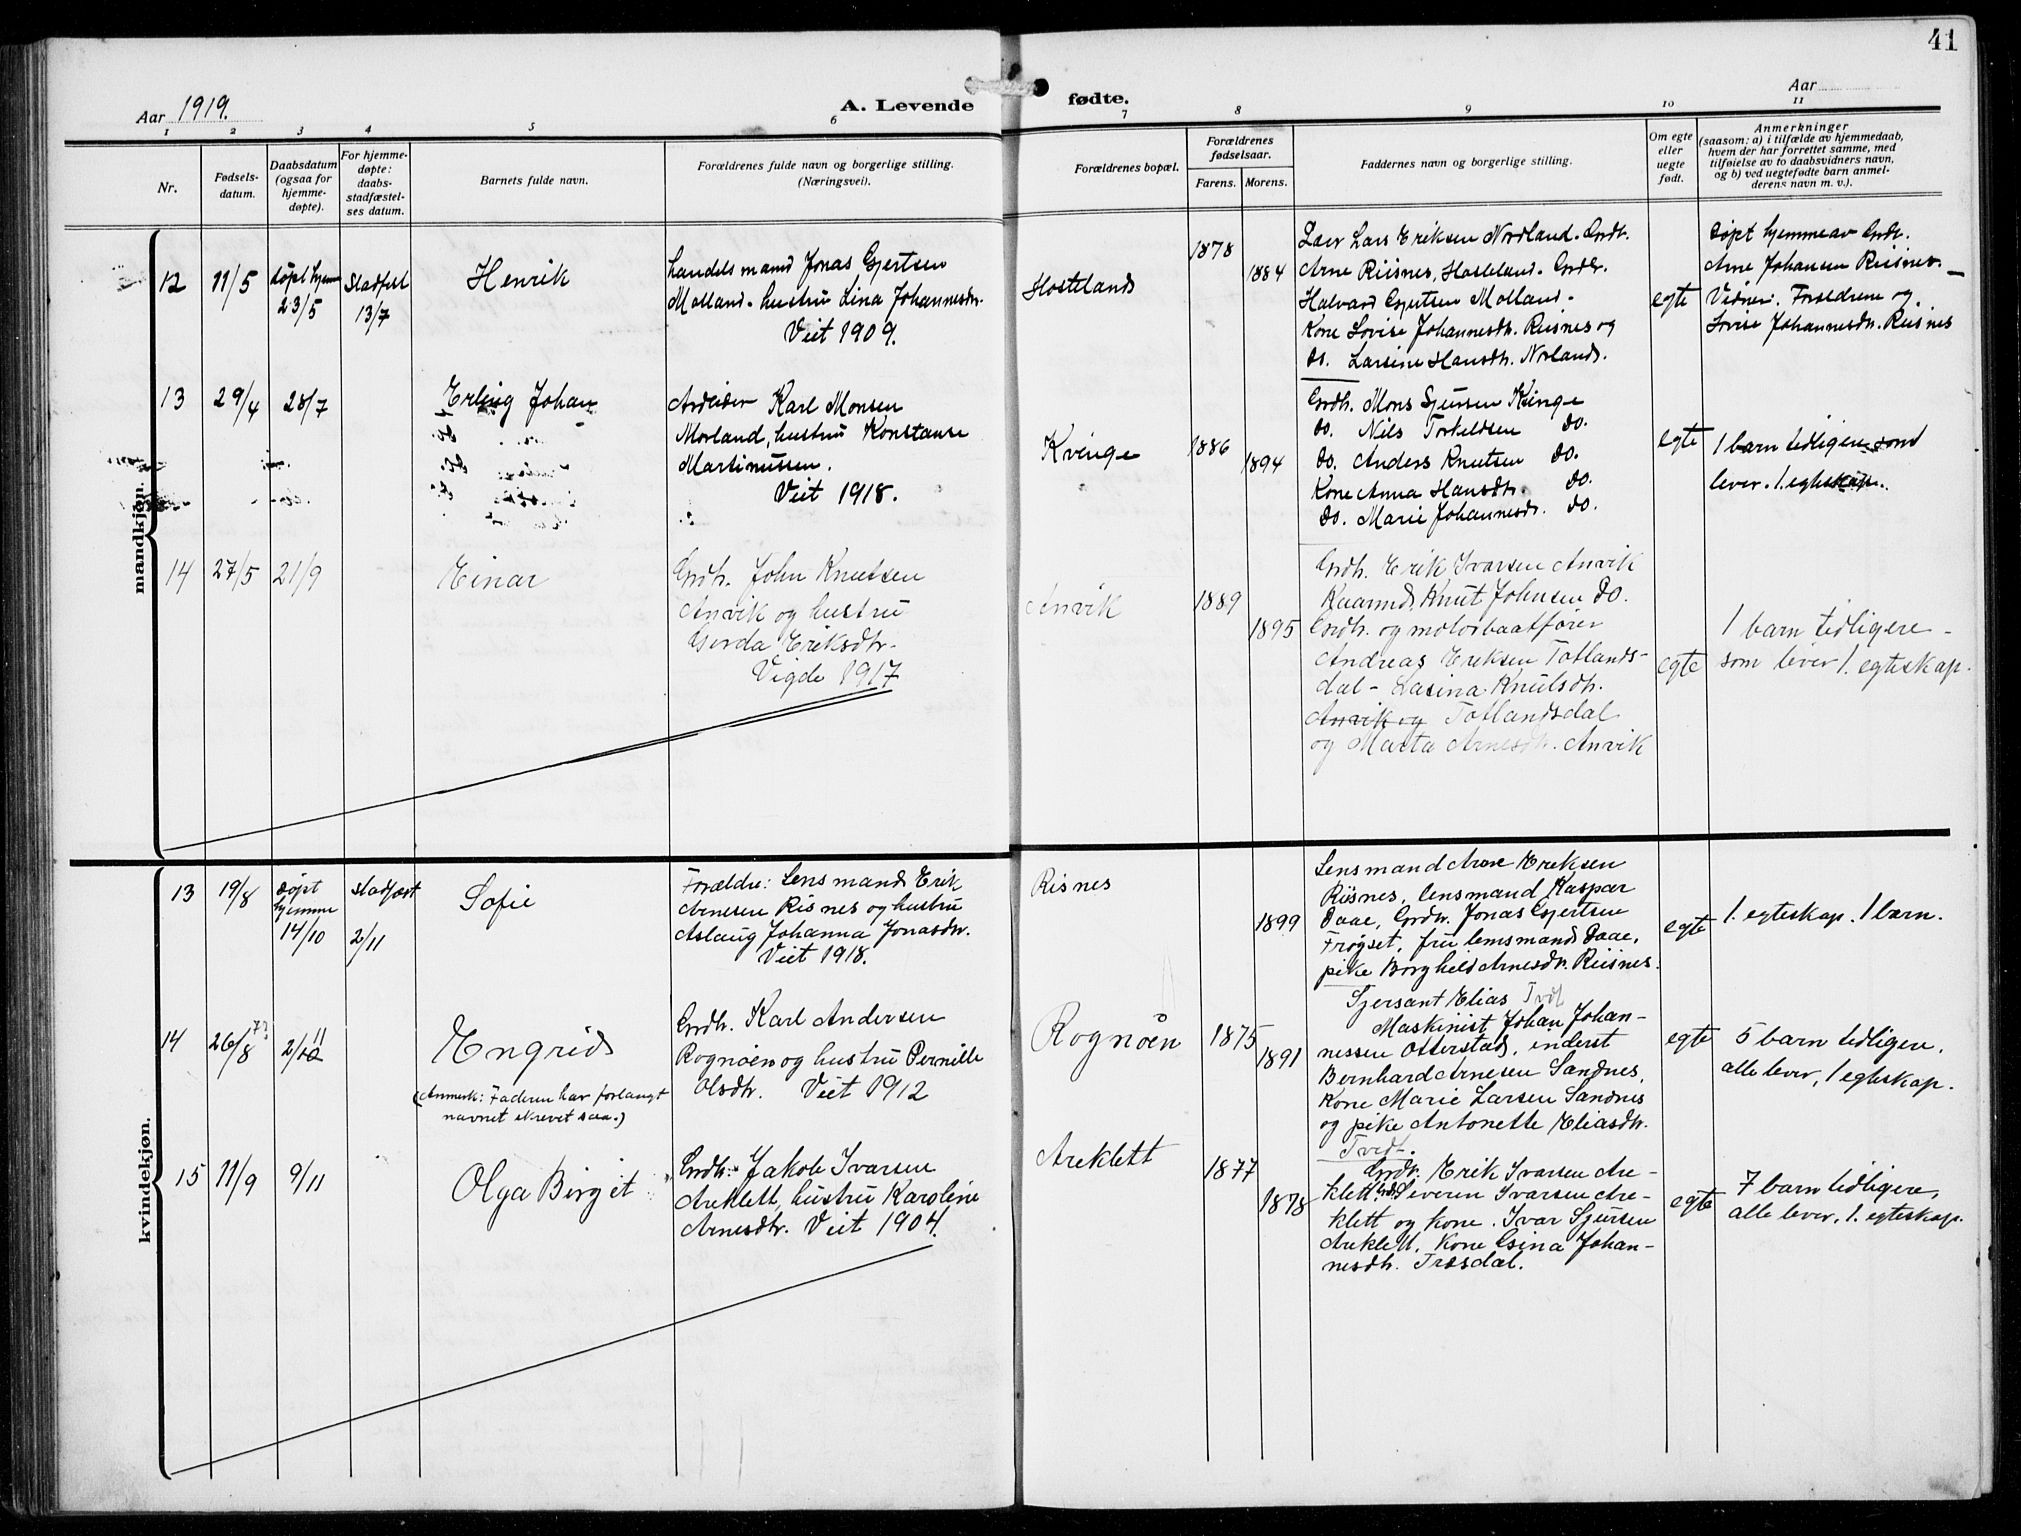 41
Aar 1919.
A. Levende fødte.
Aar
1 2 3 4 5 6 7 8 9 10 11
Nr.
Fødsels-
datum.
Daabsdatum
(ogsaa for
hjemme-
døpte).
For hjemme-
døpte:
daabs-
stadfæstel-
ses datum.
Barnets fulde navn.
Forældrenes fulde navn og borgerlige stilling.
(Næringsvei).
Forældrenes bopæl.
Forældrenes
fødselsaar.
Farens. Morens.
Faddernes navn og borgerlige stilling.
Om egte
eller
uegte
født.
Anmerkninger
(saasom: a) i tilfælde av hjemmedaab,
hvem der har forrettet samme, med
tilføielse av to daabsvidners navn,
og b) ved uegtefødte barn anmel-
derens navn m. v.).
mandkjøn.
12
11/5
døpt hjem
23/5
Stadfest
13/7
Henrik
handelsmand Jonas Gjertsen
Molland. hustru Lina Johannesdtr.
Viet 1909.
Hosteland
1878
1884
Lars Eriksen Nordland. Grdbr.
Arne Riisnes, Hosteland. Grdbr.
Halvard Gjertsen Molland.
Kone Lovise Johannesdtr. Risnes og
do. Larsine Hansdtr. Norland.
egte
døpt hjemme av Grdbr.
Arne Johansen Riisnes.
Vidner: Forældrene og
Lovise Johannesdtr. Riisnes
13
29/4
28/7
Erling Johan
Arbeider Karl Monsen
Morland, hustru Konstanse
Martinussen.
Viet 1918.
Kvinge
1886
1894
Grdb. Mons Sjursen Kvinge
do. Nils Torkeldsen do.
do. Anders Knutsen do.
Kone Anna Hansdtr. do.
do. Marie Johannesdr. do.
egte
1 barn tidligere som
lever. 1. egteskap.
14
27/5
21/9
Einar
Grdb. John Knutsen
Anvik og hustru
Gerda Eriksdtr.
Vigde 1917
Anvik
1889
1895
Grdb. Erik Ivarsen Anvik
Kaarmd. Knut Johnsen do.
Grdb. og motorbaatfører
Andreas Eriksen Totlands-
dal - Lasina Knutsdtr.
Anvik og Totlandsdal
og Marta Arnesdtr. Anvik
egte
1 barn tidligere -
som lever 1. egteskap.
kvindekjøn.
13
19/8
døpt
hjemme
14/10
stadfæst
2/11
Sofie
Forældre: Lensmand Erik
Arnesen Risnes og hustru
Aslaug Johanna Jonasdtr.
Viet 1918.
Risnes
1899
Lensmand Arne Eriksen
Riisnes, lensmand Kaspar
Daae, Grdbr. Jonas Gjertsen
Frøyset, fru lensmand Daae,
pike Borghild Arnesdtr. Riisnes.
egte
1. egteskap. 1 barn.
14
26/8
2/11
Engrid
(Anmerk: Faderen har forlangt
navnet skrevet saa.)
Grdb. Karl Andersen
Rognøen og hustru Pernille
Olsdtr. Viet 1912
Rognøen
1875
1891
Sjersant Elias Tvdt
Maskinist Johan Johan-
nessen Otterstad, enderst
Bernhard Arnesen Sandnes,
Kone Marie Larsen Sandnes
og pike Antonette Eliasdtr.
Tvedt.
egte
5 barn tidligere,
alle lever, 1 egteskap.
15
11/9
9/11
Olga Birgit
Grdb. Jakob Ivarsen
Areklett, hustru Karoline
Arnesdtr. Viet 1904.
Areklett
1877
1878
Grdb. Erik Ivarsen Are-
klett Grdb. Severin Ivarsen Are-
klett og kone. Ivar Sjursen
Areklett. Kone Gsina Johan-
nesdtr. Træsdal.
egte
7 barn tidligere,
alle lever, 1. egteskap.